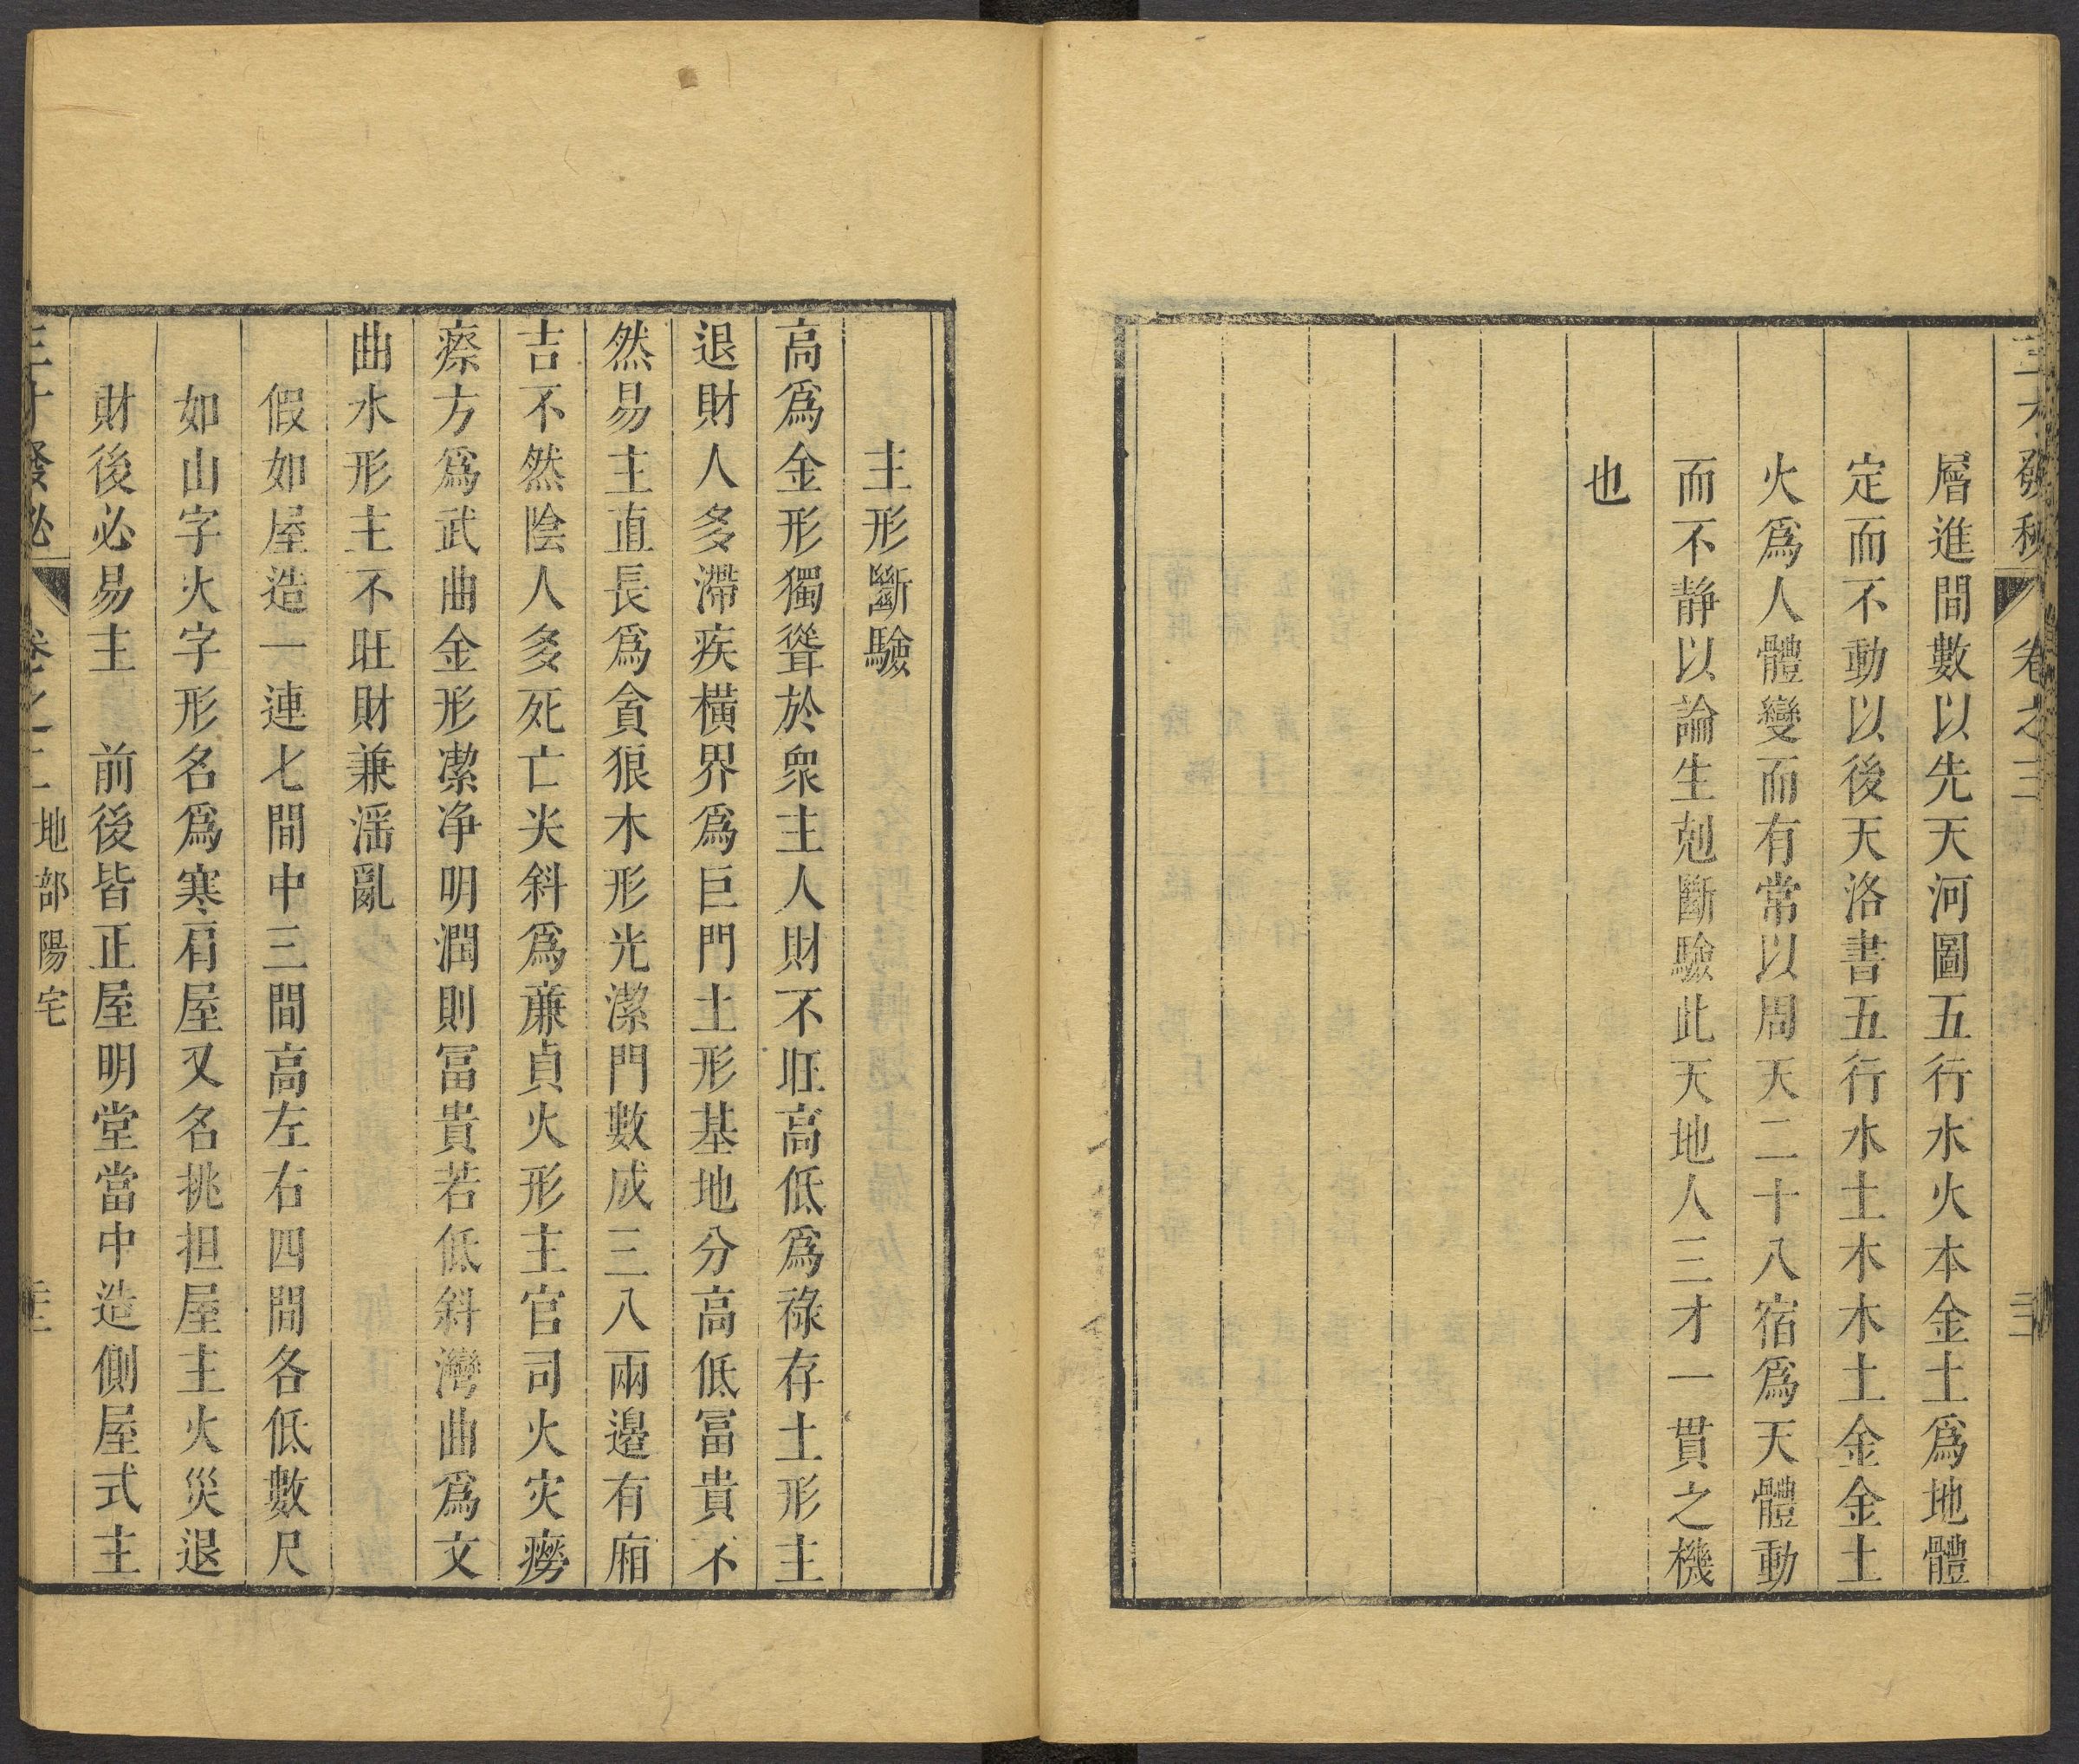 三才發秘 卷之三
層進間數以先天河圖五行水火本金土爲地體
定而不動以後天洛書五行水土木木土金金土
火爲人體變而有常以周天二十八宿爲天體動
而不静以論生剋斷驗此天地人三才一貫之機
也
主形斷驗
高爲金形獨聳於衆主人財不旺高低爲祿存土形主
退財人多滯疾橫界爲巨門土形基地分高低冨貴不
然易主直長爲貪狼木形光潔門數成三八兩邉有廂
吉不然陰人多死亡尖斜爲亷貞火形主官司火灾癆
瘵方爲武曲金形潔净明潤則冨貴若低斜灣曲爲文
曲水形主不旺財兼滛亂
假如屋造一連七間中三間高左右四間各低數尺
如山字火字形名爲寒肩屋又名挑担屋主火災退
財後必易主　前後皆正屋明堂當中造側屋式主
三才發必 卷之三 地部陽宅